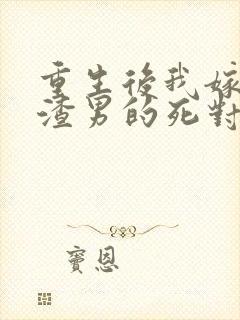 重生後我嫁
渣男的死對
寶恩